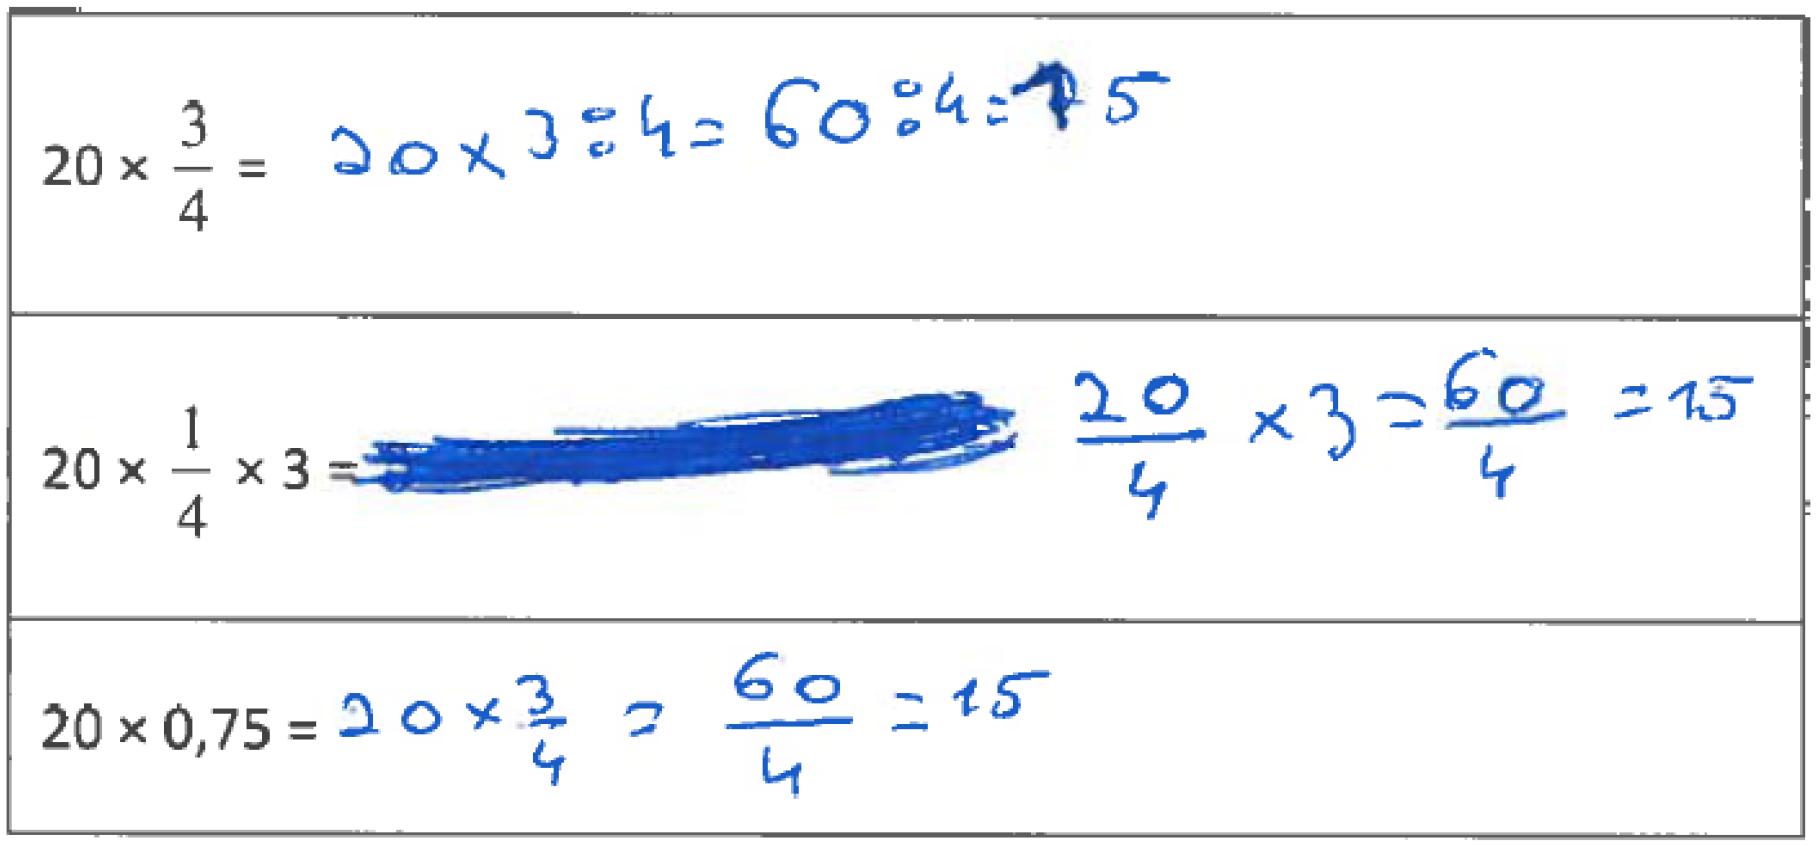 20 × 3/4 = 20 × 3 ÷ 4 = 60 ÷ 4 = 15
20 × 1/4 × 3 = 20/4 × 3 = 60/4 = 15
20 × 0,75 = 20 × 3/4 = 60/4 = 15